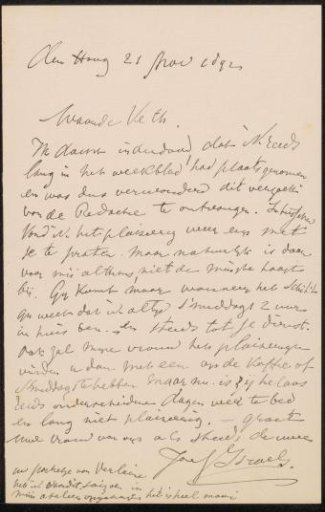 Den Haag 21 Nov 1892
Waarde Veth.
Ik dacht inderdaad dat 't reeds
lang in het weekblad had plaats genomen
en was dus verwonderd dit verzoek
van de Redactie te ontvangen.
vond ik het plaizierig weer eens met
je te praten. Maar natuurlijk is daar
voor mij althans niet de minste haast
bij. Gij komt maar wanneer het schikt
gij weet dat ik altijd 's middags 2 uur
in huis ben en steeds tot je dienst.
Ook zal mijne vrouw het plaizierig
vinden u dan met een op de koffie of
's middags te hebben maar nu is zij helaas
reeds onderscheidene dagen weer te bed
en lang niet plaizierig. groet
uwe vrouw van ons als steeds de uwe
Jozef Israels.
uw portretje van Verlaine
heb ik
mijn atelier opgehangen het is heel mooi